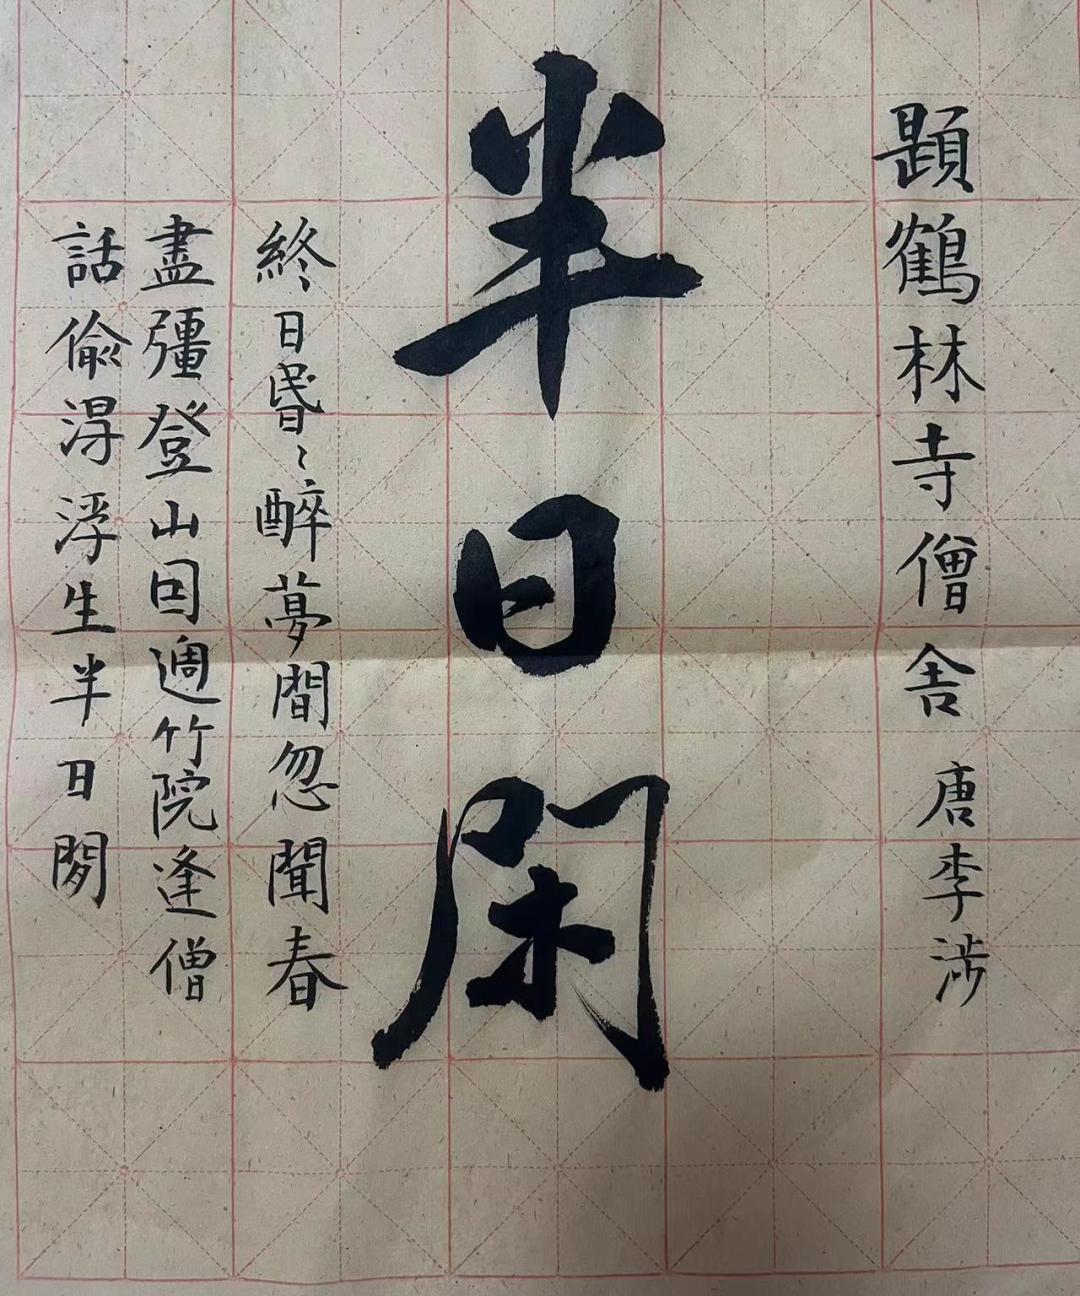 題鶴林寺僧舍 唐 李涉
半日閑
終日昏〻醉夢間忽聞春
盡彊登山因過竹院逢僧
話偷得浮生半日閑